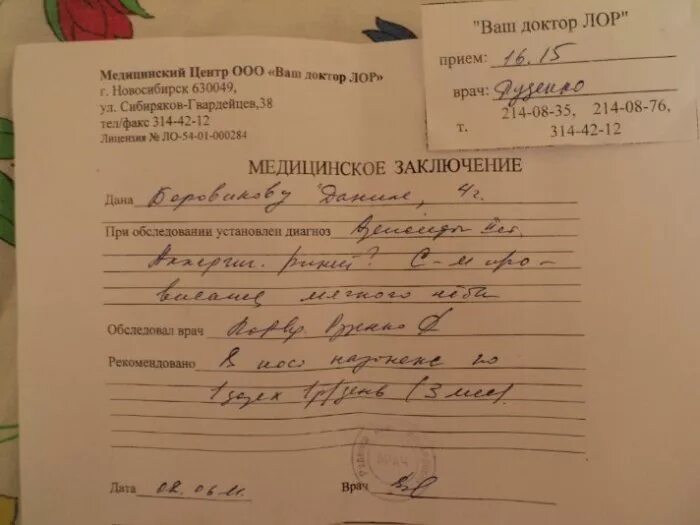 Медицинский Центр ООО «Ваш доктор ЛОР»
г. Новосибирск 630049,
ул. Сибиряков-Гвардейцев,38
тел/факс 314-42-12
Лицензия № ЛО-54-01-000284
"Ваш доктор ЛОР"
прием: 16.15
врач: Руденко
214-08-35, 214-08-76,
т. 314-42-12
МЕДИЦИНСКОЕ ЗАКЛЮЧЕНИЕ
Дана Боровикову Даниле, 4г.
При обследовании установлен диагноз Аденоиды II ст,
Аллергич. ринит? С-м про-
висания мягкого нёба
Обследовал врач
Рекомендовано В нос назонекс по
1 дозе 1р/день (3 мес).
Дата 02.06.11. Врач